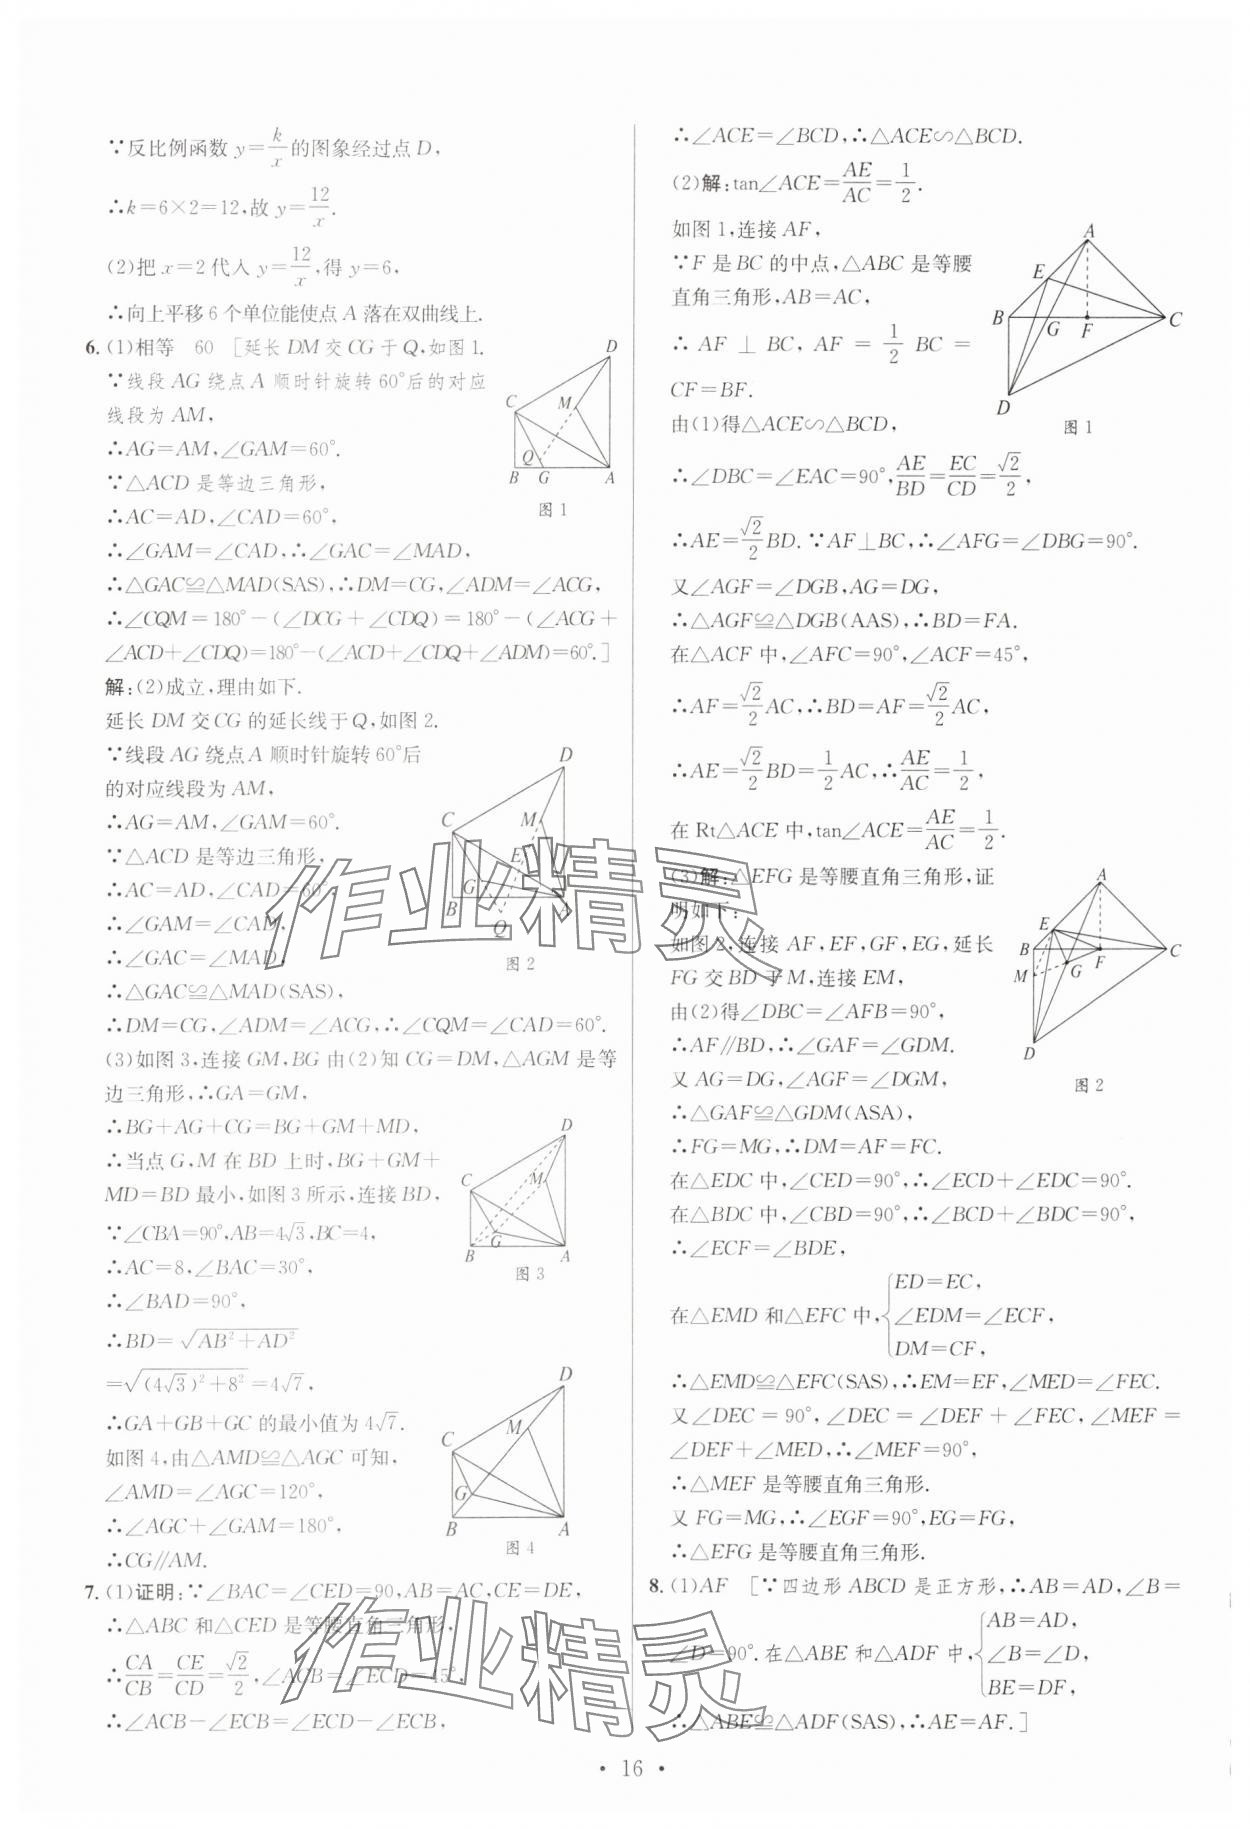 ∵反比例函数 y=k/x 的图象经过点 D,
∴k=6×2=12,故 y=12/x.
(2)把 x=2 代入 y=12/x,得 y=6,
∴向上平移 6 个单位能使点 A 落在双曲线上.
6. (1)相等 60 [延长 DM 交 CG 于 Q,如图 1.
∵线段 AG 绕点 A 顺时针旋转 60°后的对应
线段为 AM,
∴AG=AM,∠GAM=60°.
∵△ACD 是等边三角形,
∴AC=AD,∠CAD=60°,
∴∠GAM=∠CAD,∴∠GAC=∠MAD,
∴△GAC≌△MAD(SAS),∴DM=CG,∠ADM=∠ACG,
∴∠CQM=180°-(∠DCG+∠CDQ)=180°-(∠ACG+
∠ACD+∠CDQ)=180°-(∠ACD+∠CDQ+∠ADM)=60°.]
D
C
M
Q
B G A
图 1
解:(2)成立,理由如下.
延长 DM 交 CG 的延长线于 Q,如图 2.
∵线段 AG 绕点 A 顺时针旋转 60°后
的对应线段为 AM,
∴AG=AM,∠GAM=60°.
∵△ACD 是等边三角形,
∴AC=AD,∠CAD=60°,
∴∠GAM=∠CAD,
∴∠GAC=∠MAD,
∴△GAC≌△MAD(SAS),
∴DM=CG,∠ADM=∠ACG,∴∠CQM=∠CAD=60°.
D
C
M
E
G
B
A
Q
图 2
(3)如图 3,连接 GM,BG 由(2)知 CG=DM,△AGM 是等
边三角形,∴GA=GM,
∴BG+AG+CG=BG+GM+MD,
∴当点 G,M 在 BD 上时,BG+GM+
MD=BD 最小,如图 3 所示,连接 BD,
∵∠CBA=90°,AB=4√3,BC=4,
∴AC=8,∠BAC=30°,
∴∠BAD=90°,
∴BD=√(AB²+AD²)
=√((4√3)²+8²)=4√7,
∴GA+GB+GC 的最小值为 4√7.
D
C
M
G
B
A
图 3
如图 4,由△AMD≌△AGC 可知,
∠AMD=∠AGC=120°,
∴∠AGC+∠GAM=180°,
∴CG∥AM.
D
M
C
G
B
A
图 4
7. (1)证明:∵∠BAC=∠CED=90,AB=AC,CE=DE,
∴△ABC 和△CED 是等腰直角三角形,
∴CA/CB=CE/CD=√2/2,∠ACB=∠ECD=45°,
∴∠ACB-∠ECB=∠ECD-∠ECB,
∴∠ACE=∠BCD,∴△ACE∽△BCD.
(2)解:tan∠ACE=AE/AC=1/2.
如图 1,连接 AF,
∵F 是 BC 的中点,△ABC 是等腰
直角三角形,AB=AC,
∴AF⊥BC,AF=1/2 BC=
CF=BF.
由(1)得△ACE∽△BCD,
A
E
B G F C
D
图 1
∴∠DBC=∠EAC=90°,AE/BD=EC/CD=√2/2,
∴AE=√2/2 BD.∵AF⊥BC,∴∠AFG=∠DBG=90°.
又∠AGF=∠DGB,AG=DG,
∴△AGF≌△DGB(AAS),∴BD=FA.
在△ACF 中,∠AFC=90°,∠ACF=45°,
∴AF=√2/2 AC,∴BD=AF=√2/2 AC,
∴AE=√2/2 BD=1/2 AC,∴AE/AC=1/2,
在 Rt△ACE 中,tan∠ACE=AE/AC=1/2.
(3)解:△EFG 是等腰直角三角形,证
明如下:
如图 2,连接 AF,EF,GF,EG,延长
FG 交 BD 于 M,连接 EM,
由(2)得∠DBC=∠AFB=90°,
∴AF∥BD,∴∠GAF=∠GDM.
又 AG=DG,∠AGF=∠DGM,
∴△GAF≌△GDM(ASA),
∴FG=MG,∴DM=AF=FC.
A
E
B
F
C
M
G
D
图 2
在△EDC 中,∠CED=90°,∴∠ECD+∠EDC=90°.
在△BDC 中,∠CBD=90°,∴∠BCD+∠BDC=90°,
∴∠ECF=∠BDE,
在△EMD 和△EFC 中,{ED=EC,
∠EDM=∠ECF,
DM=CF,
∴△EMD≌△EFC(SAS),∴EM=EF,∠MED=∠FEC.
又∠DEC=90°,∠DEC=∠DEF+∠FEC,∠MEF=
∠DEF+∠MED,∴∠MEF=90°,
∴△MEF 是等腰直角三角形.
又 FG=MG,∴∠EGF=90°,EG=FG,
∴△EFG 是等腰直角三角形.
8. (1)AF [∵四边形 ABCD 是正方形,∴AB=AD,∠B=
∠D=90°.在△ABE 和△ADF 中,{AB=AD,
∠B=∠D,
BE=DF,
∴△ABE≌△ADF(SAS),∴AE=AF.]
作业精灵
作业精灵
• 16 •